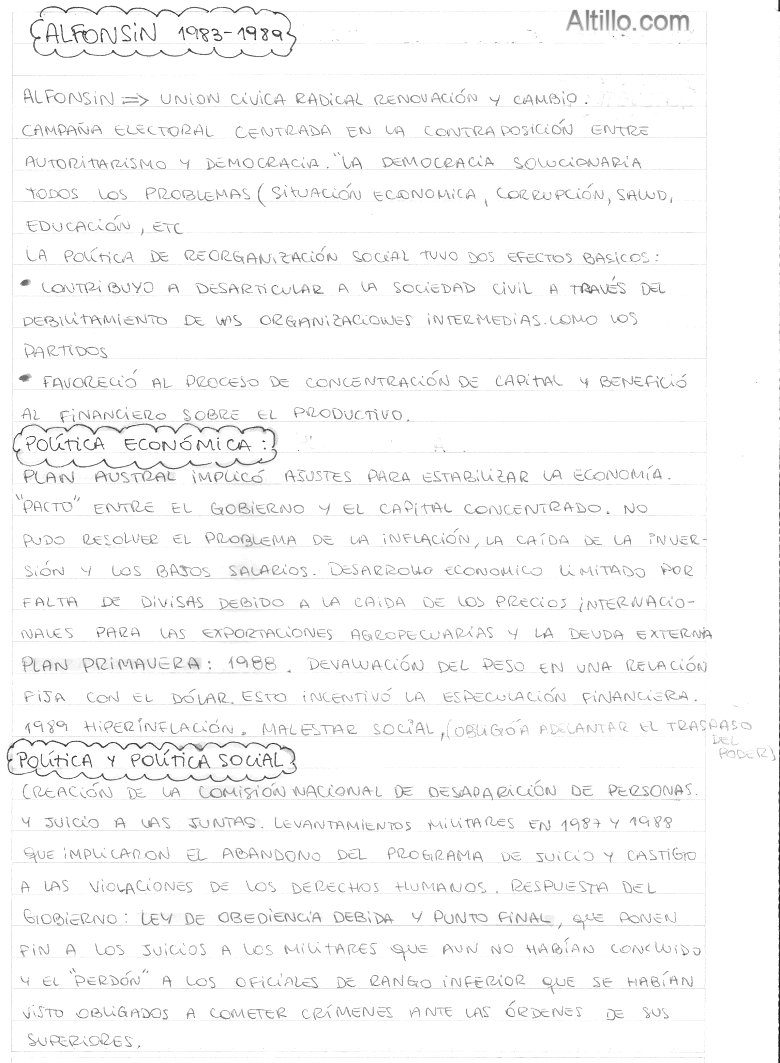 Altillo.com
ALFONSiN 1983-1989
ALFONSiN => UNION CiVICA RADICAL RENOVACIÓN Y CAMBIO.
CAMPAÑA ELECTORAL CENTRADA EN LA CONTRAPOSICIÓN ENTRE
AUTORITARISMO Y DEMOCRACIA. "LA DEMOCRACIA SOLUCIONARIA
TODOS LOS PROBLEMAS (SITUACIÓN ECONOMICA, CORRUPCIÓN, SALUD,
EDUCACIÓN, ETC
LA POLÍTICA DE REORGANIZACIÓN SOCIAL TUVO DOS EFECTOS BASICOS:
• CONTRIBUYO A DESARTICULAR A LA SOCIEDAD CIVIL A TRAVÉS DEL
DEBILITAMIENTO DE LAS ORGANIZACIONES INTERMEDIAS. COMO LOS
PARTIDOS
• FAVORECIÓ AL PROCESO DE CONCENTRACIÓN DE CAPITAL Y BENEFICIÓ
AL FINANCIERO SOBRE EL PRODUCTIVO.
POLÍTICA ECONÓMICA:
PLAN AUSTRAL IMPLICÓ AJUSTES PARA ESTABILIZAR LA ECONOMÍA.
"PACTO" ENTRE EL GOBIERNO Y EL CAPITAL CONCENTRADO. NO
PUDO RESOLVER EL PROBLEMA DE LA INFLACIÓN, LA CAÍDA DE LA INVER-
SIÓN Y LOS BAJOS SALARIOS. DESARROLLO ECONOMICO LIMITADO POR
FALTA DE DIVISAS DEBIDO A LA CAIDA DE LOS PRECIOS INTERNACIO-
NALES PARA LAS EXPORTACIONES AGROPECUARIAS Y LA DEUDA EXTERNA
PLAN PRIMAVERA: 1988. DEVALUACIÓN DEL PESO EN UNA RELACIÓN
FIJA CON EL DÓLAR. ESTO INCENTIVÓ LA ESPECULACIÓN FINANCIERA.
1989 HIPERINFLACIÓN. MALESTAR SOCIAL, (OBLIGÓ A ADELANTAR EL TRASPASO
DEL
PODER)
POLÍTICA Y POLÍTICA SOCIAL
CREACIÓN DE LA COMISIÓN NACIONAL DE DESAPARICIÓN DE PERSONAS.
Y JUICIO A LAS JUNTAS. LEVANTAMIENTOS MILITARES EN 1987 Y 1988
QUE IMPLICARON EL ABANDONO DEL PROGRAMA DE JUICIO Y CASTIGO
A LAS VIOLACIONES DE LOS DERECHOS HUMANOS. RESPUESTA DEL
GOBIERNO: LEY DE OBEDIENCIA DEBIDA Y PUNTO FINAL, QUE PONEN
FIN A LOS JUICIOS A LOS MILITARES QUE AUN NO HABÍAN CONCLUIDO
Y EL "PERDÓN" A LOS OFICIALES DE RANGO INFERIOR QUE SE HABÍAN
VISTO OBLIGADOS A COMETER CRÍMENES ANTE LAS ÓRDENES DE SUS
SUPERIORES.